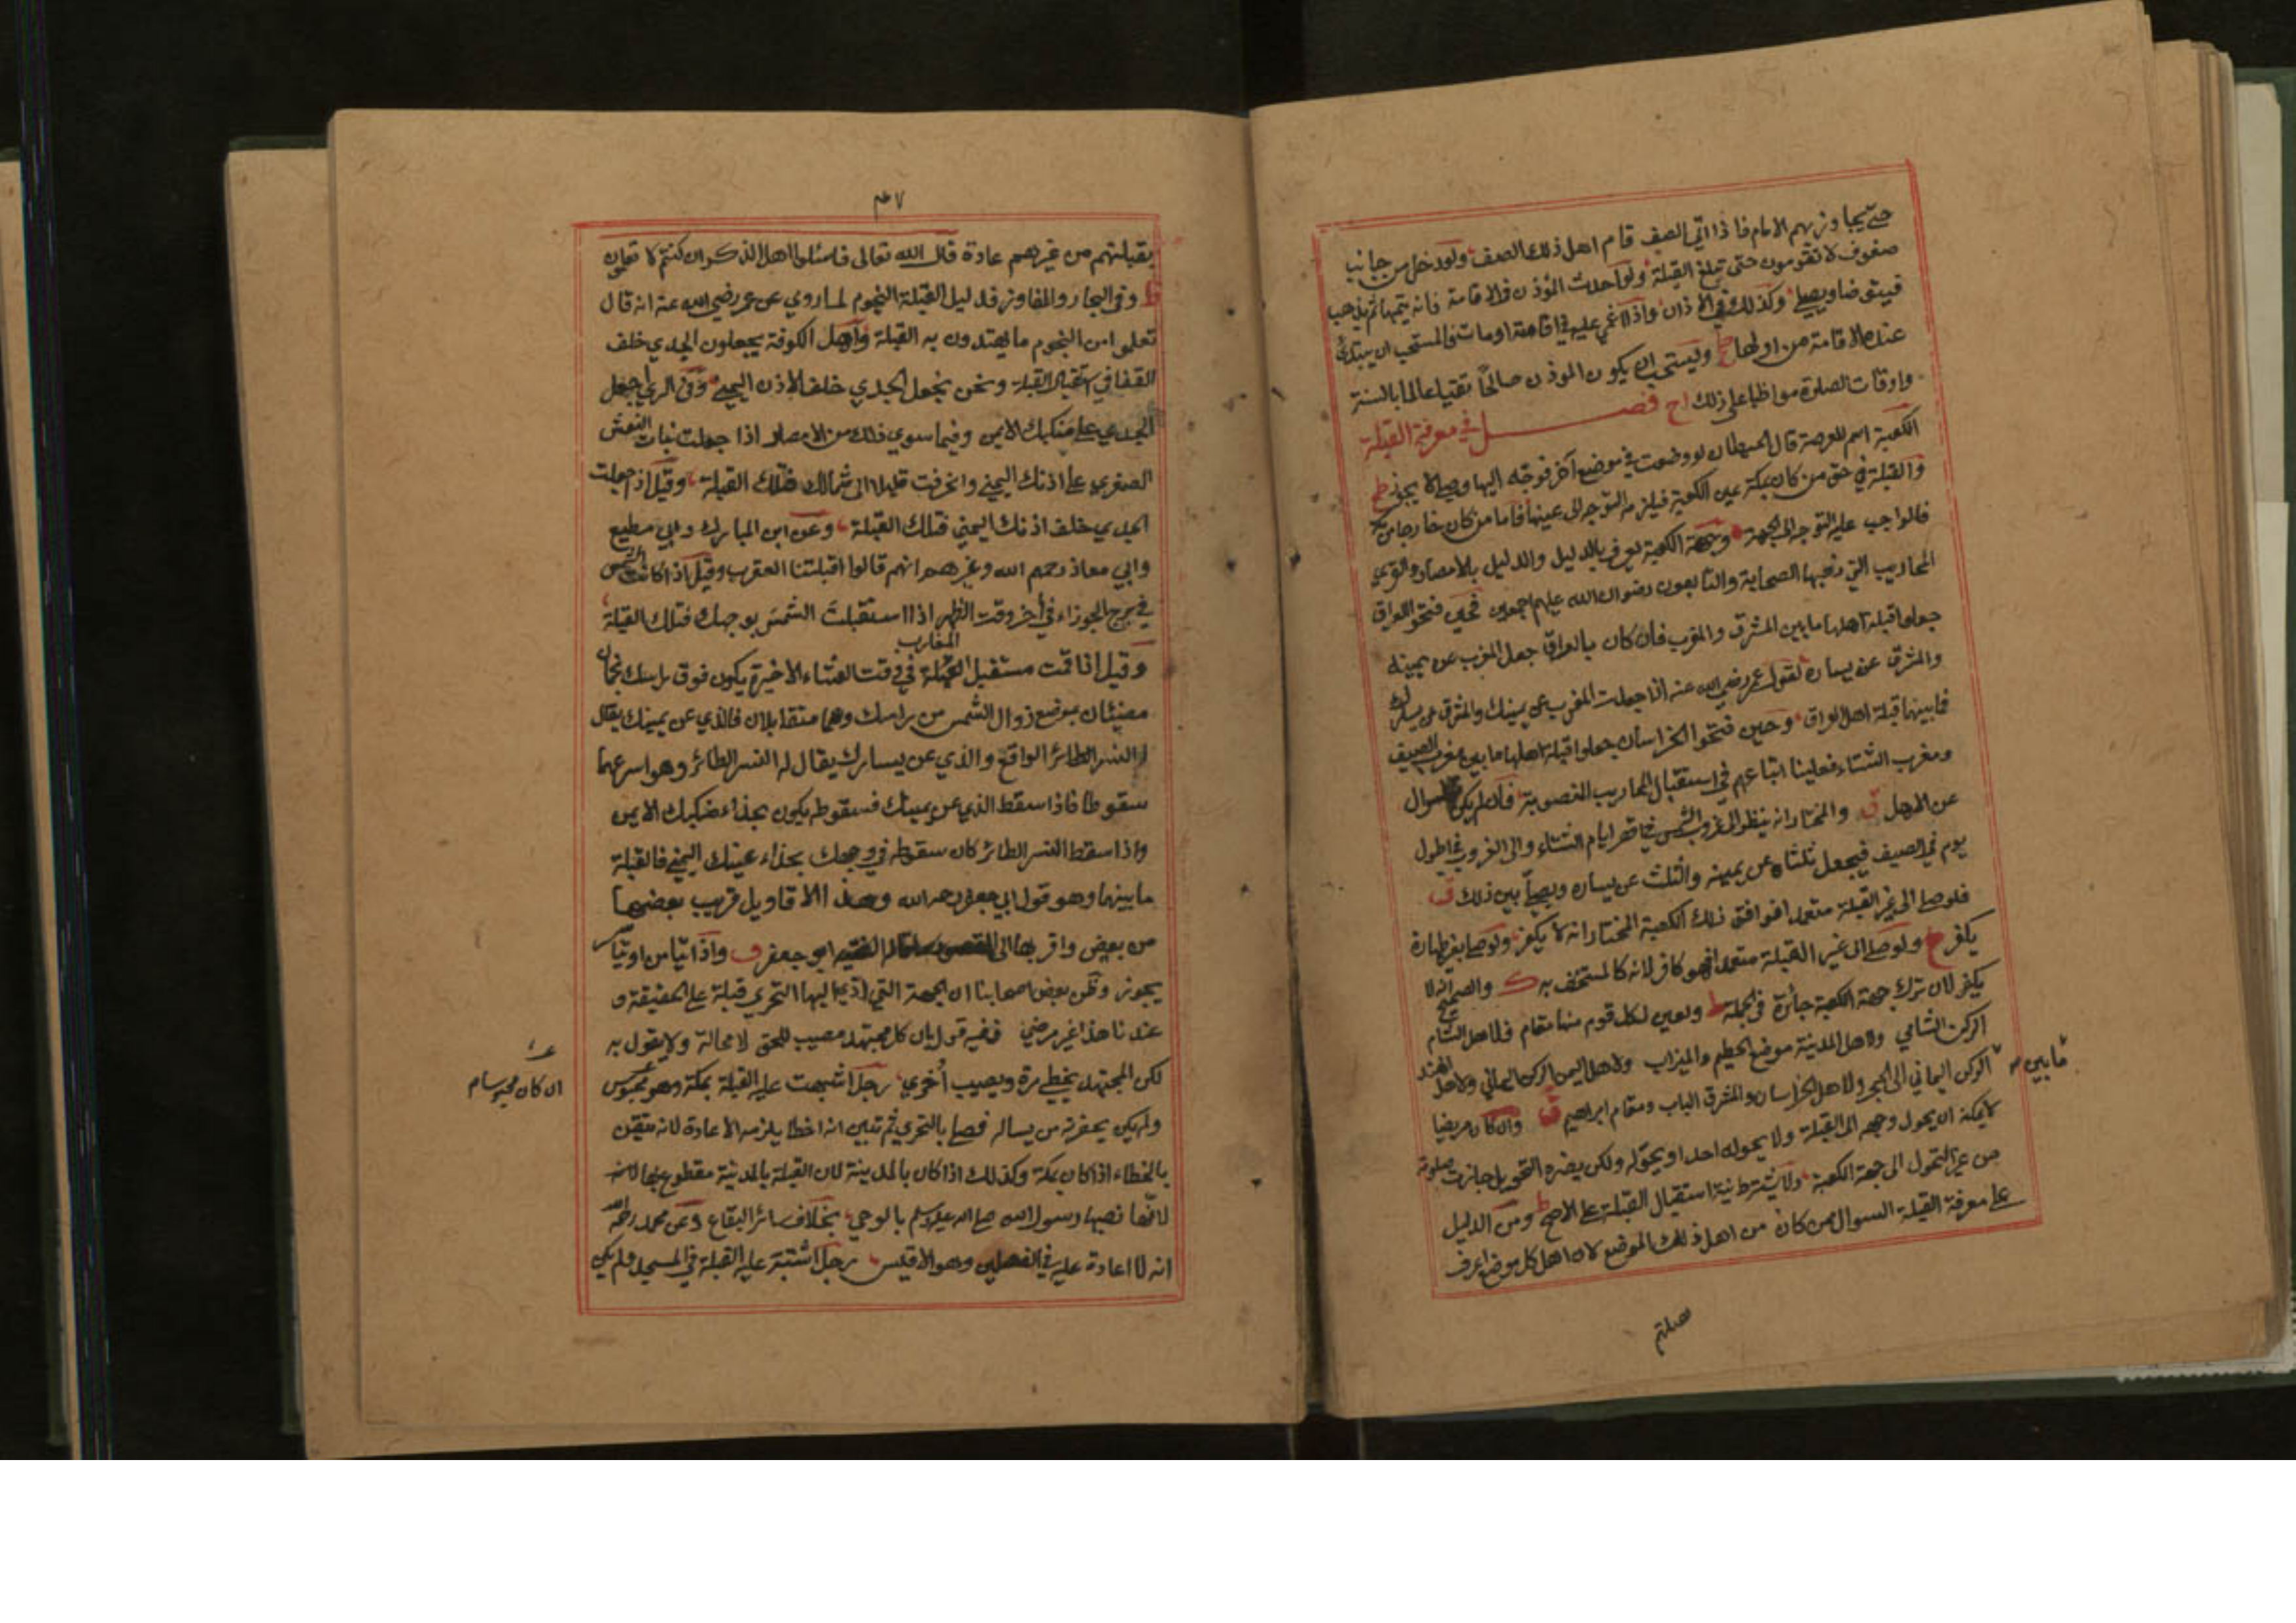 حتى يجاوزبهم الامام فاذا اتي الصف قام اهل ذلك الصف ولو دخل من جانب
صفوف لا تقومون حتى تبلغ القبلة ولو احدث المؤذن في الاقامة فانه يتمها ثم يذهب
فيتوضا ويصلي وكذلك في الاذان واذا اغمي عليه في اقامته او مات فالمستحب ان يبتدئ
عنده الاقامة من اولها ويستحب ان يكون الموذن صالحا تقيا عالما بالسنة
واوقات الصلوة مواظبا على ذلك فصل في معرفة القبلة
الكعبة اسم للعرصة قال الحيطان لو وضعت في موضع آخر فتوجه اليها وصلى لا يجوز
والقبلة في حق من كان بمكة عين الكعبة فيلزمه التوجه الى عينها فاما من كان خارجا من
فالواجب عليه التوجه الى الجهة وجهة الكعبة يعرف بالدليل والدليل بالامصار والقرى
المحاريب التي نصبها الصحابة والتابعون رضوان الله عليهم اجمعين فحين فتحوا العراق
جعلوا قبلة اهلها ما بين المشرق والمغرب فان كان بالعراق جعل المغرب عن يمينه
والمشرق عن يساره لقول عمر رضي الله عنه اذا جعلت المغرب عن يمينك والمشرق عن يسارك
فما بينهما قبلة اهل العراق وحين فتحوا الخراسان جعلوا قبلة اهلها ما بين مغرب الصيف
ومغرب الشتاء فعلينا اتباعهم في استقبال المحاريب المنصوبة فان لم يكن السوال
عن الاهل ق والمختار انه ينظر الى غروب الشمس في اقصر ايام الشتاء والى الغروب في اطول
يوم في الصيف فيجعل ثلثاه عن يمينه والثلث عن يساره ويصلي بين ذلك ق
فلو صلى الى غير القبلة متعمدا فوافق ذلك الكعبة المختار انه لا يكفر ولو صلى بغير طهارة
يكفر ح ولو صلى الى غير القبلة متعمدا فهو كافر لانه كالمستخف به ك والصحيح انه لا
يكفر لان ترك جهة الكعبة جائزة في الجملة ط وتعين لكل قوم منها مقام فلاهل الشام
الركن الشامي ولاهل المدينة موضع الحطيم والميزاب ولاهل اليمن الركن اليماني ولاهل الهند
ما بين
الركن اليماني الى الحجر ولاهل الخراسان والمشرق الباب ومقام ابراهيم ق وان كان مريضا
لا يمكنه ان يحول وجهه الى القبلة ولا يحوله احد او يحوله ولكن يضره التحويل جازت صلوته
من غير التحول الى جهة الكعبة ولا يشترط نية استقبال القبلة على الاصح ط ومن الدليل
على معرفة القبلة السوال ممن كان من اهل ذلك الموضع لان اهل كل موضع اعرف
بقبلتهم من غيرهم عادة قال الله تعالى فاسئلوا اهل الذكر ان كنتم لا تعلمون
ط وفي البحار والمفاوز فدليل القبلة النجوم لما روي عن عمر رضي الله عنه انه قال
تعلموا من النجوم ما يهتدون به القبلة واهل الكوفة يجعلون الجدي خلف
القفا في استقبال القبلة ونحن نجعل الجدي خلف الاذن اليمنى وفي الري اجعل
الجدي على منكبك الايمن وفيما سوي ذلك من الامصار اذا جعلت بنات النعش
الصغري على اذنك اليمني وانحرفت قليلا الى شمالك فتلك القبلة وقيل اذا جعلت
الجدي خلف اذنك اليمني فتلك القبلة وعن ابن المبارك وابي مطيع
وابي معاذ رحمهم الله وغيرهم انهم قالوا قبلتنا العقرب وقيل اذا كانت الشمس
في برج الجوزاء في آخر وقت الظهر اذا استقبلت الشمس بوجهك فتلك القبلة
المغارب
وقيل اذا قمت مستقبل القبلة في وقت العشاء الاخيرة يكون فوق راسك نجمان
مضيئان بموضع زوال الشمس من راسك وهما متقابلان فالذي عن يمينك يقال
له النسر الطائر الواقع والذي عن يسارك يقال له النسر الطائر وهو اسرعهما
سقوطا فاذا سقط الذي عن يمينك فسقوطه يكون بحذاء منكبك الايمن
واذا سقط النسر الطائر كان سقوطه في وجهك بحذاء عينك اليمني فالقبلة
ما بينهما وهو قول ابي جعفر رحمه الله وهذه الاقاويل قريب بعضها
من بعض واقربها الى الفقيه ابو جعفر ف واذا تيامن او تياسر
يجوز وظن بعض اصحابنا ان الجهة التي اليها التحري قبلة على الحقيقة و
عندنا هذا غير مرضي ففيه قول بان كل مجتهد مصيب للحق لا محالة ولا يقول به
لكن المجتهد يخطي مرة ويصيب أخري رجل اشتبهت عليه القبلة بمكة وهو محبوس
ان كان محبوسا م
ولم يكن بحضرته من يساله فصلى بالتحري ثم تبين انه اخطا يلزمه الاعادة لانه متيقن
بالخطاء اذا كان بمكة وكذلك اذا كان بالمدينة لان القبلة بالمدينة مقطوع بها لانه
لانها نصبها رسول الله صلى الله عليه وسلم بالوحي بخلاف سائر البقاع وعن محمد رحمه الله
انه لا اعادة عليه في الفصلين وهو الاقيس رجل اشتبه عليه القبلة في المسجد ولم يكن